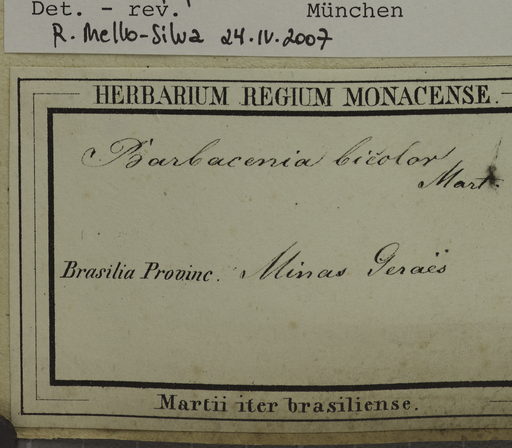 Det. - rev. München
R. Mello-Silva 24.IV.2007
HERBARIUM REGIUM MONACENSE.
Barbacenia bicolor
Mart.
Brasilia Provinc. Minas Geraës
Martii iter brasiliense.